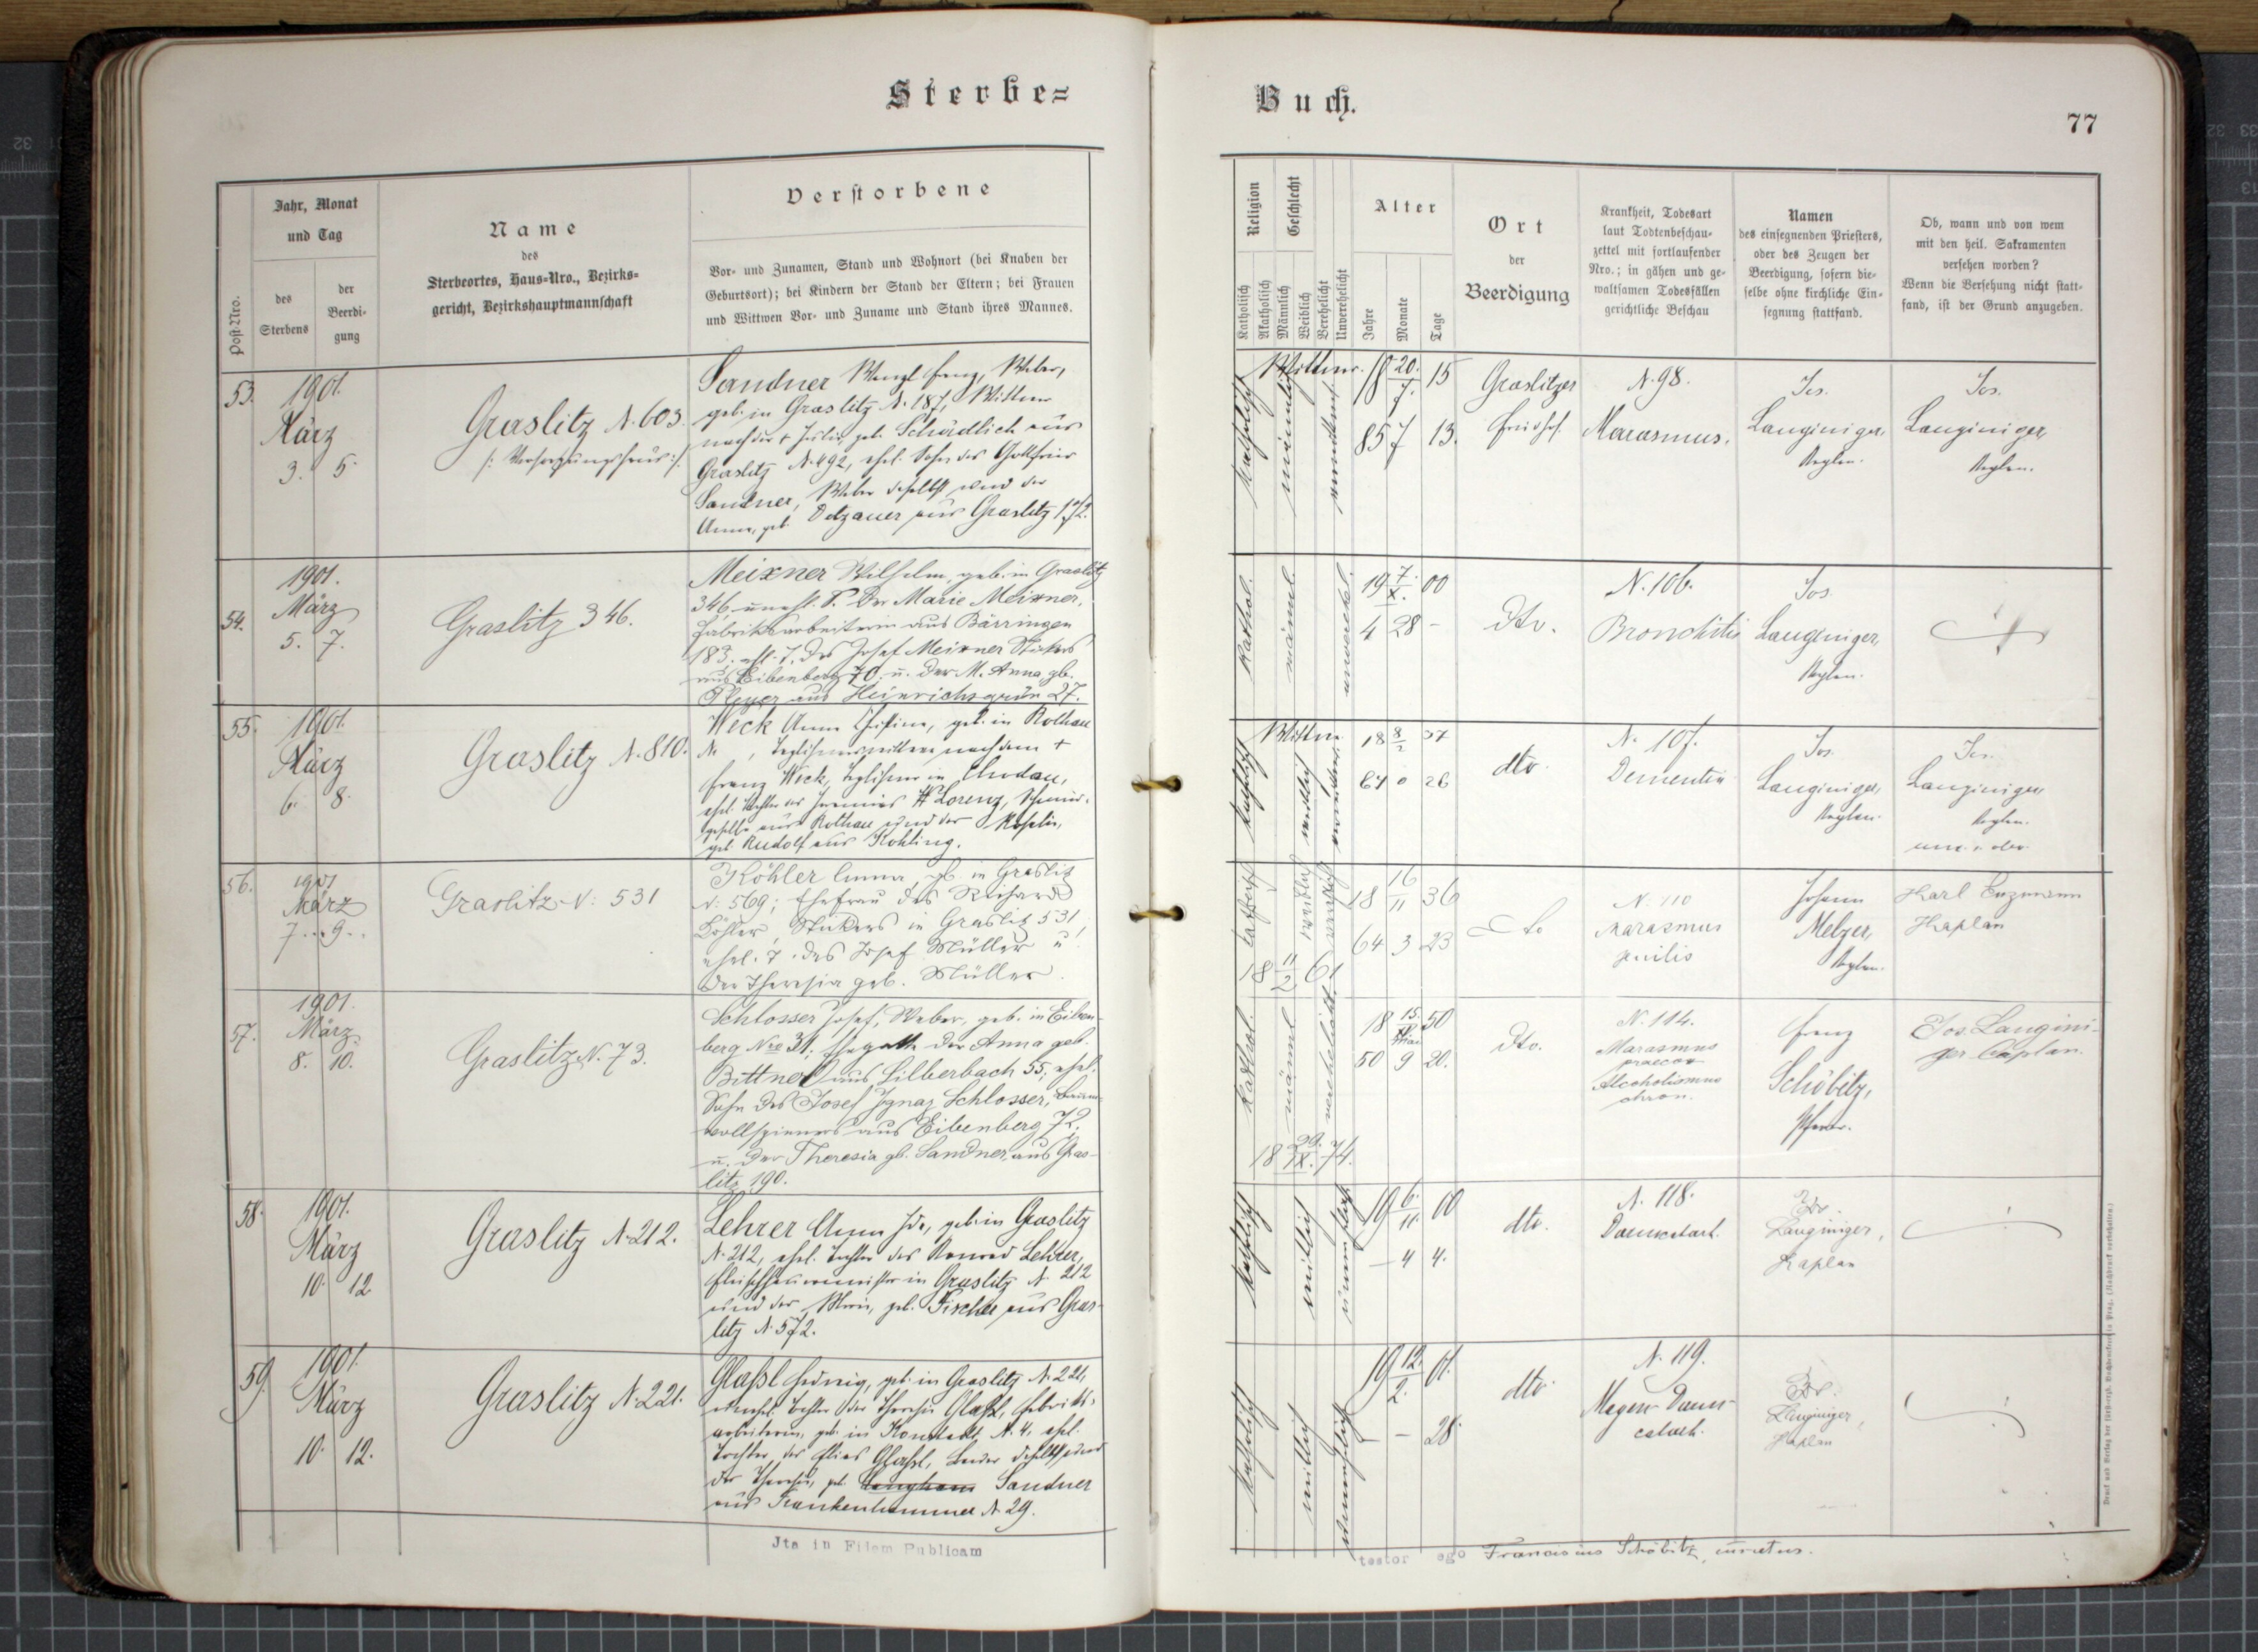 Sterbe=
Jahr, Monat
und Tag
Post-Nro.
des
Sterbens
der
Beerdi-
gung
Name
des
Sterbeortes, Haus-Nro., Bezirks-
gericht, Bezirkshauptmannschaft
Verstorbene
Vor- und Zunamen, Stand und Wohnort (bei Knaben der
Geburtsort); bei Kindern der Stand der Eltern; bei Frauen
und Wittwen Vor- und Zuname und Stand ihres Mannes.
53.
1901.
März
3. 5.
Graslitz N. 603.
/: Versorgungshaus :/
Sandner Wenzl Franz, Weber,
geb. in Graslitz N. 187, Witwer
nach der + geb. Schädlich aus
Graslitz N. 492, ehel. Sohn des
Sandner, Weber daselbst und der
Anna, geb. Dotzauer aus Graslitz 172.
54.
1901.
März
5. 7.
Graslitz 346.
Meixner Wilhelm, geb. in Graslitz
346, unehl. S. der Marie Meixner,
Fabriksarbeiterin aus Bärringen
183, ehl. T. des Josef Meixner Stickers
aus Eibenberg 70. u. der M. Anna gb.
Pleyer aus Heinrichsgrün 27.
55.
1901.
März
6. 8.
Graslitz N. 810.
Weck Anna Christina, geb. in Rothau
N. , Taglöhnerswitwe nach dem +
Franz Weck, Taglöhner in Chodau,
ehel. Tochter des Lorenz,
aus Rothau und der Rosalia,
geb. Rudolf aus Kohling.
56.
1901
März
7. 9.
Graslitz N: 531
Köhler Emma, gb. in Graslitz
N. 569; Ehefrau des Richard
Köhler, Stickers in Graslitz 531,
ehel. T. des Josef Müller u.
der Theresia geb. Müller.
57.
1901.
März
8. 10.
Graslitz N. 73.
Schlosser Josef, Weber, geb. in Eiben-
berg Nro 31; Ehegatte der Anna geb.
Bittner aus Silberbach 55; ehel.
Sohn des Josef Ignaz Schlosser, Baum-
wollspinners aus Eibenberg 72.
u. der Theresia gb. Sandner, aus Gras-
litz 190.
58.
1901.
März
10. 12.
Graslitz N. 212.
Lehrer Anna Ida, geb. in Graslitz
N. 212, ehel. Tochter des Konrad Lehrer,
Fleischhauermeister in Graslitz N. 212
und der Marie, geb. Fischer aus Gras-
litz N. 572.
59.
1901.
März
10. 12.
Graslitz N. 221.
Glaßl Hedwig, geb. in Graslitz N. 221,
unehel. Tochter der Theresia Glaßl, Fabriks-
arbeiterin, geb. in Konstadt N. 4, ehel.
Tochter des Elias Glaßl, daselbst und
der Theresia, geb. Langhans Sandner
aus Frankenhammer N. 29.
Jta in Fidem Publicam
Buch.
77
Religion
Katholisch
Akatholisch
Geschlecht
Männlich
Weiblich
Verehelicht
Unverehelicht
Alter
Jahre
Monate
Tage
Ort
der
Beerdigung
Krankheit, Todesart
laut Todtenbeschau-
zettel mit fortlaufender
Nro.; in gähen und ge-
waltsamen Todesfällen
gerichtliche Beschau
Namen
des einsegnenden Priesters,
oder des Zeugen der
Beerdigung, sofern die-
selbe ohne kirchliche Ein-
segnung stattfand.
Ob, wann und von wem
mit den heil. Sakramenten
versehen worden?
Wenn die Versehung nicht statt-
fand, ist der Grund anzugeben.
katholisch
Witwer.
männlich
18 20./7. 15
85 7 13.
Graslitzer
Friedhof.
N. 98.
Marasmus.
Jos.
Langiniger,
Kaplan.
Jos.
Langiniger,
Kaplan.
kathol.
männl.
unverehel.
19 7./X. 00
4 28 -
Dto.
N. 106.
Bronchitis
Jos.
Langiniger,
Kaplan.
katholisch
Witwe
weiblich
18 8/2 37
64 0 26
dto.
N. 107.
Dementia
Jos.
Langiniger,
Kaplan.
Jos.
Langiniger,
Kaplan.
katholisch
weiblich
verehelicht
18 16/11 36
64 3 23
18 11/2 61
dto
N. 110
Marasmus
senilis
Johann
Melzer,
Kaplan.
Karl Enzmann
Kaplan
kathol.
männl.
verehelicht.
18 15./Mai 50
50 9 20.
18 29./IX. 74.
Dto.
N. 114.
Marasmus
praecox
Alcoholismus
chron.
Franz
Schöbitz,
Pfarrer.
Jos. Langini-
ger Caplan.
katholisch
weiblich
unverehelicht
19 6./11. 00
- 4 4.
dto.
N. 118.
Darmkatarh.
Langiniger,
Kaplan
katholisch
weiblich
unverehelicht
19 12./2. 01.
- 28.
dto.
N. 119.
Magen Darm-
catarh.
Langiniger,
Kaplan
testor ego Franciscus Schöbitz, curatus.